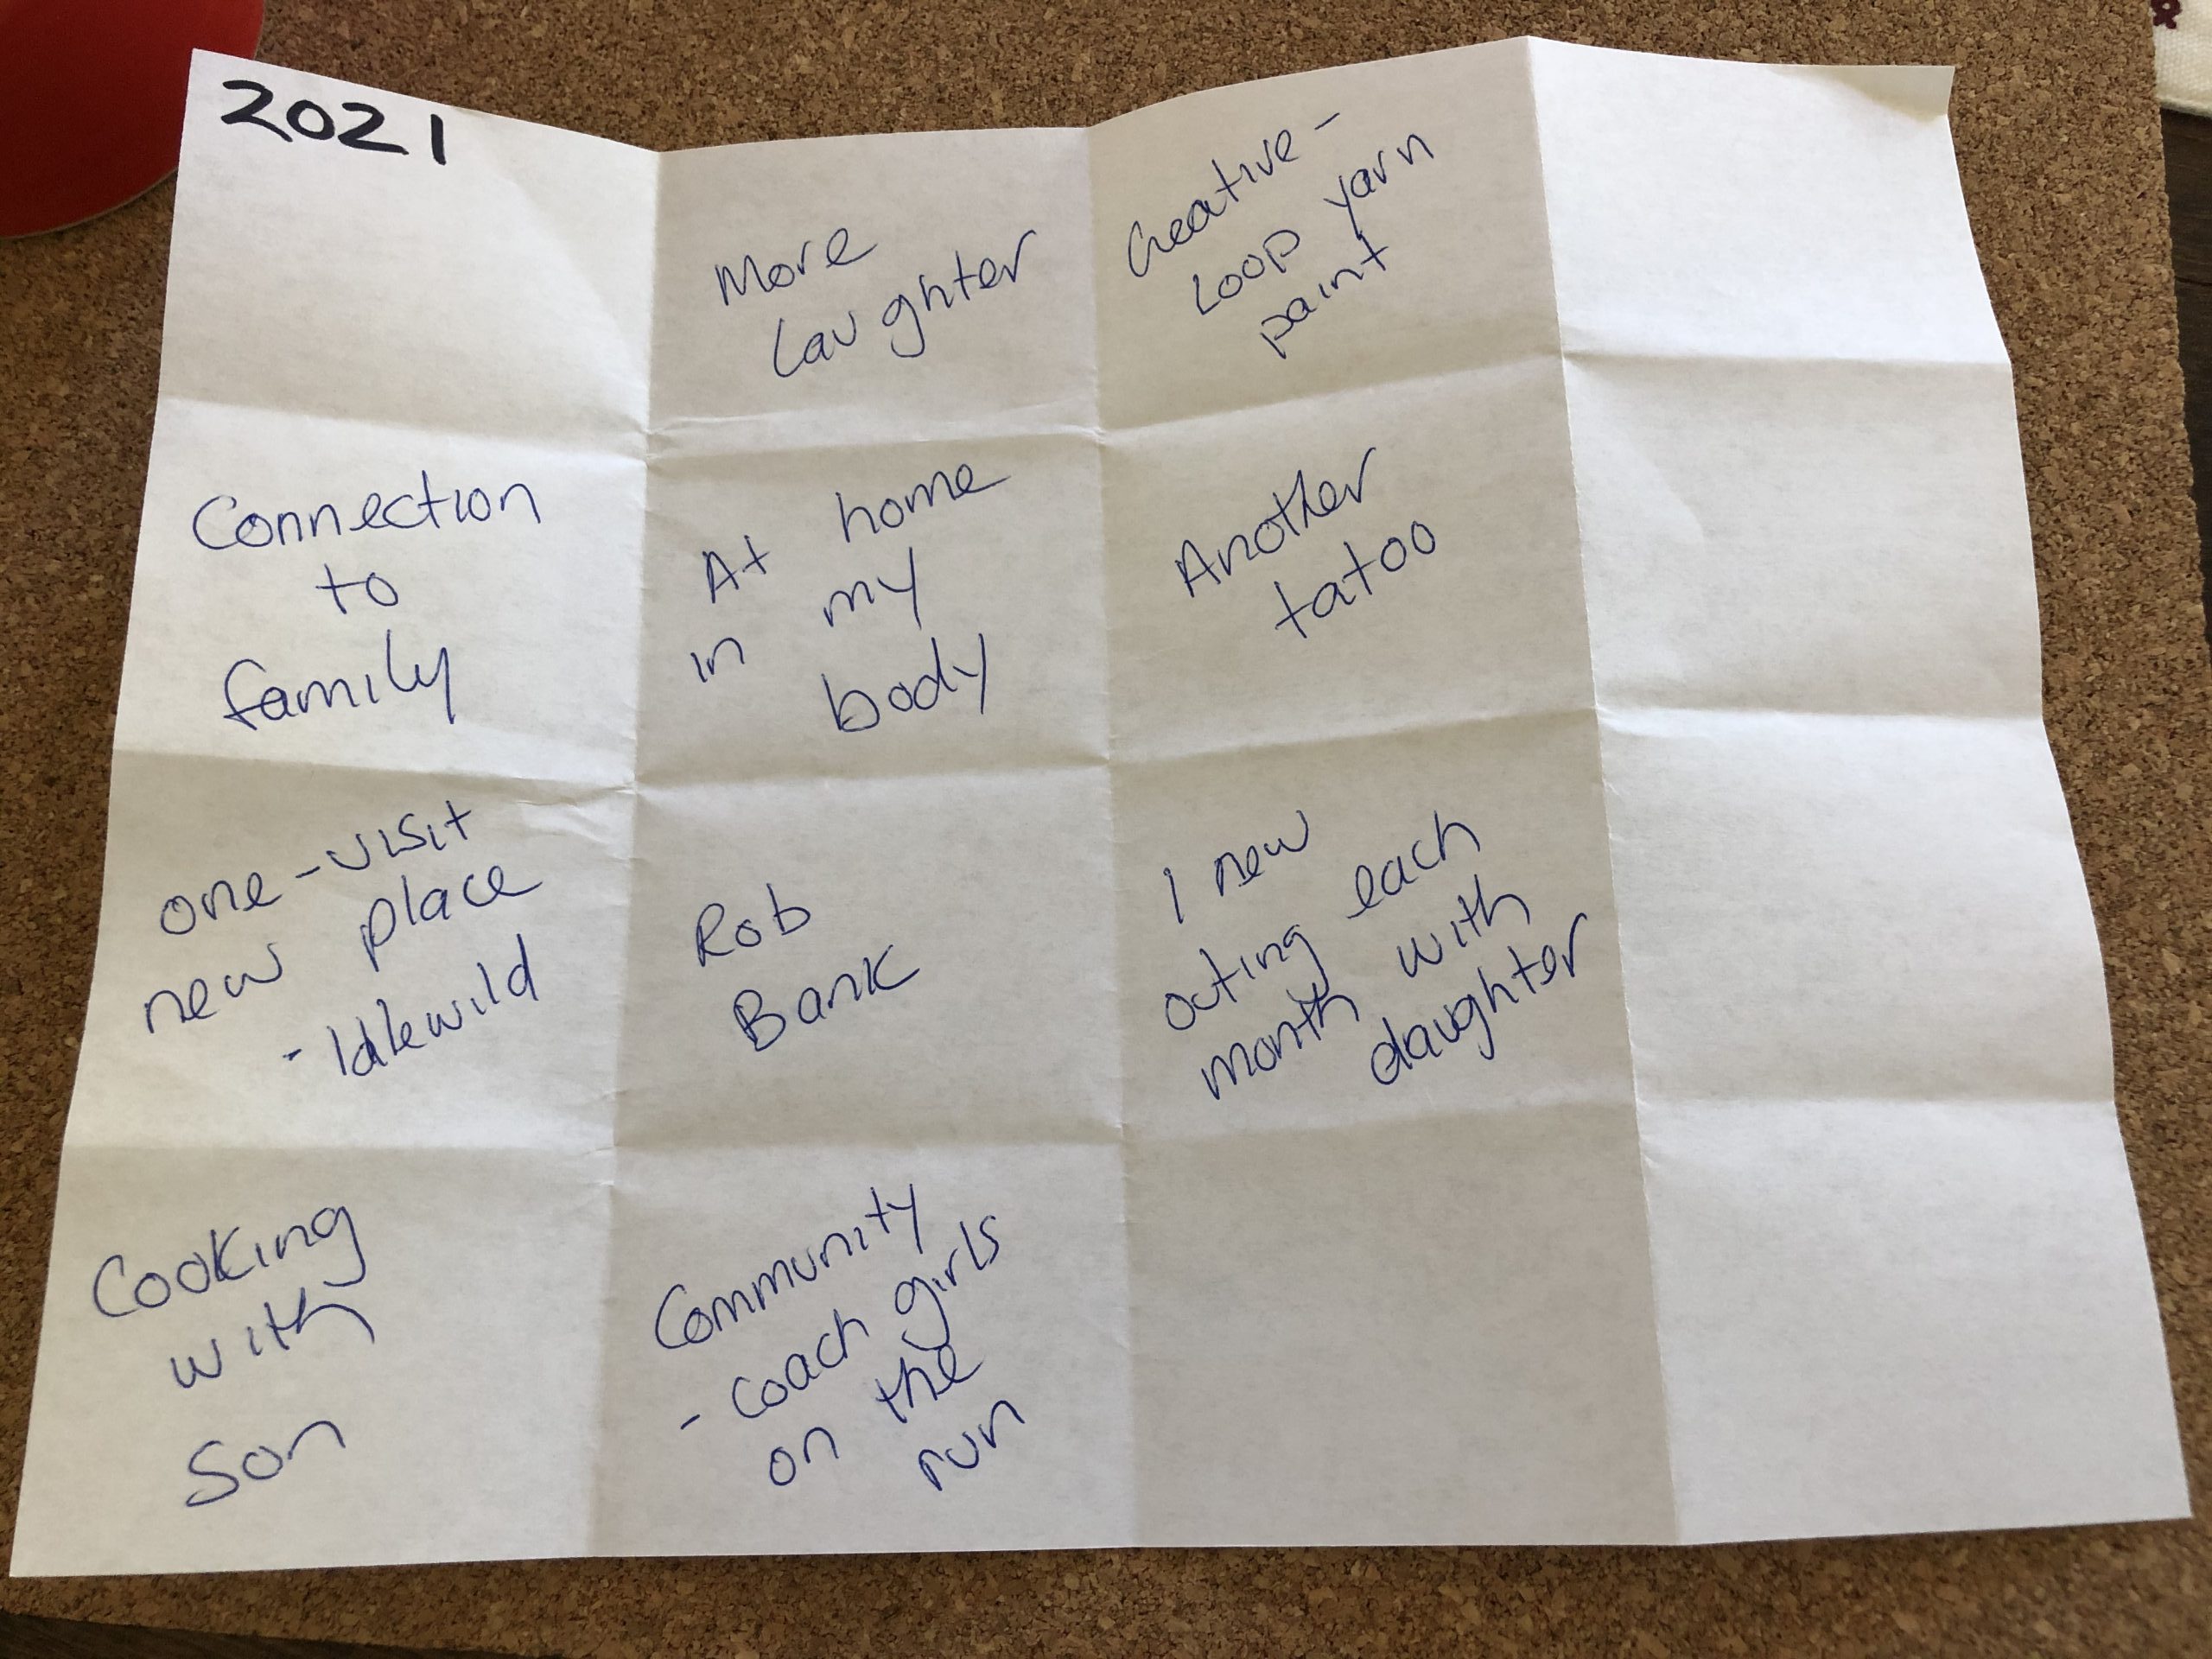 2021
More
Laughter
Creative-
Loop yarn
paint
Connection
to
family
At home
in my
body
Another
tatoo
one-visit
new place
- Idlewild
Rob
Bank
1 new
outing each
month with
daughter
Cooking
with
Son
Community
- coach girls
on the
run